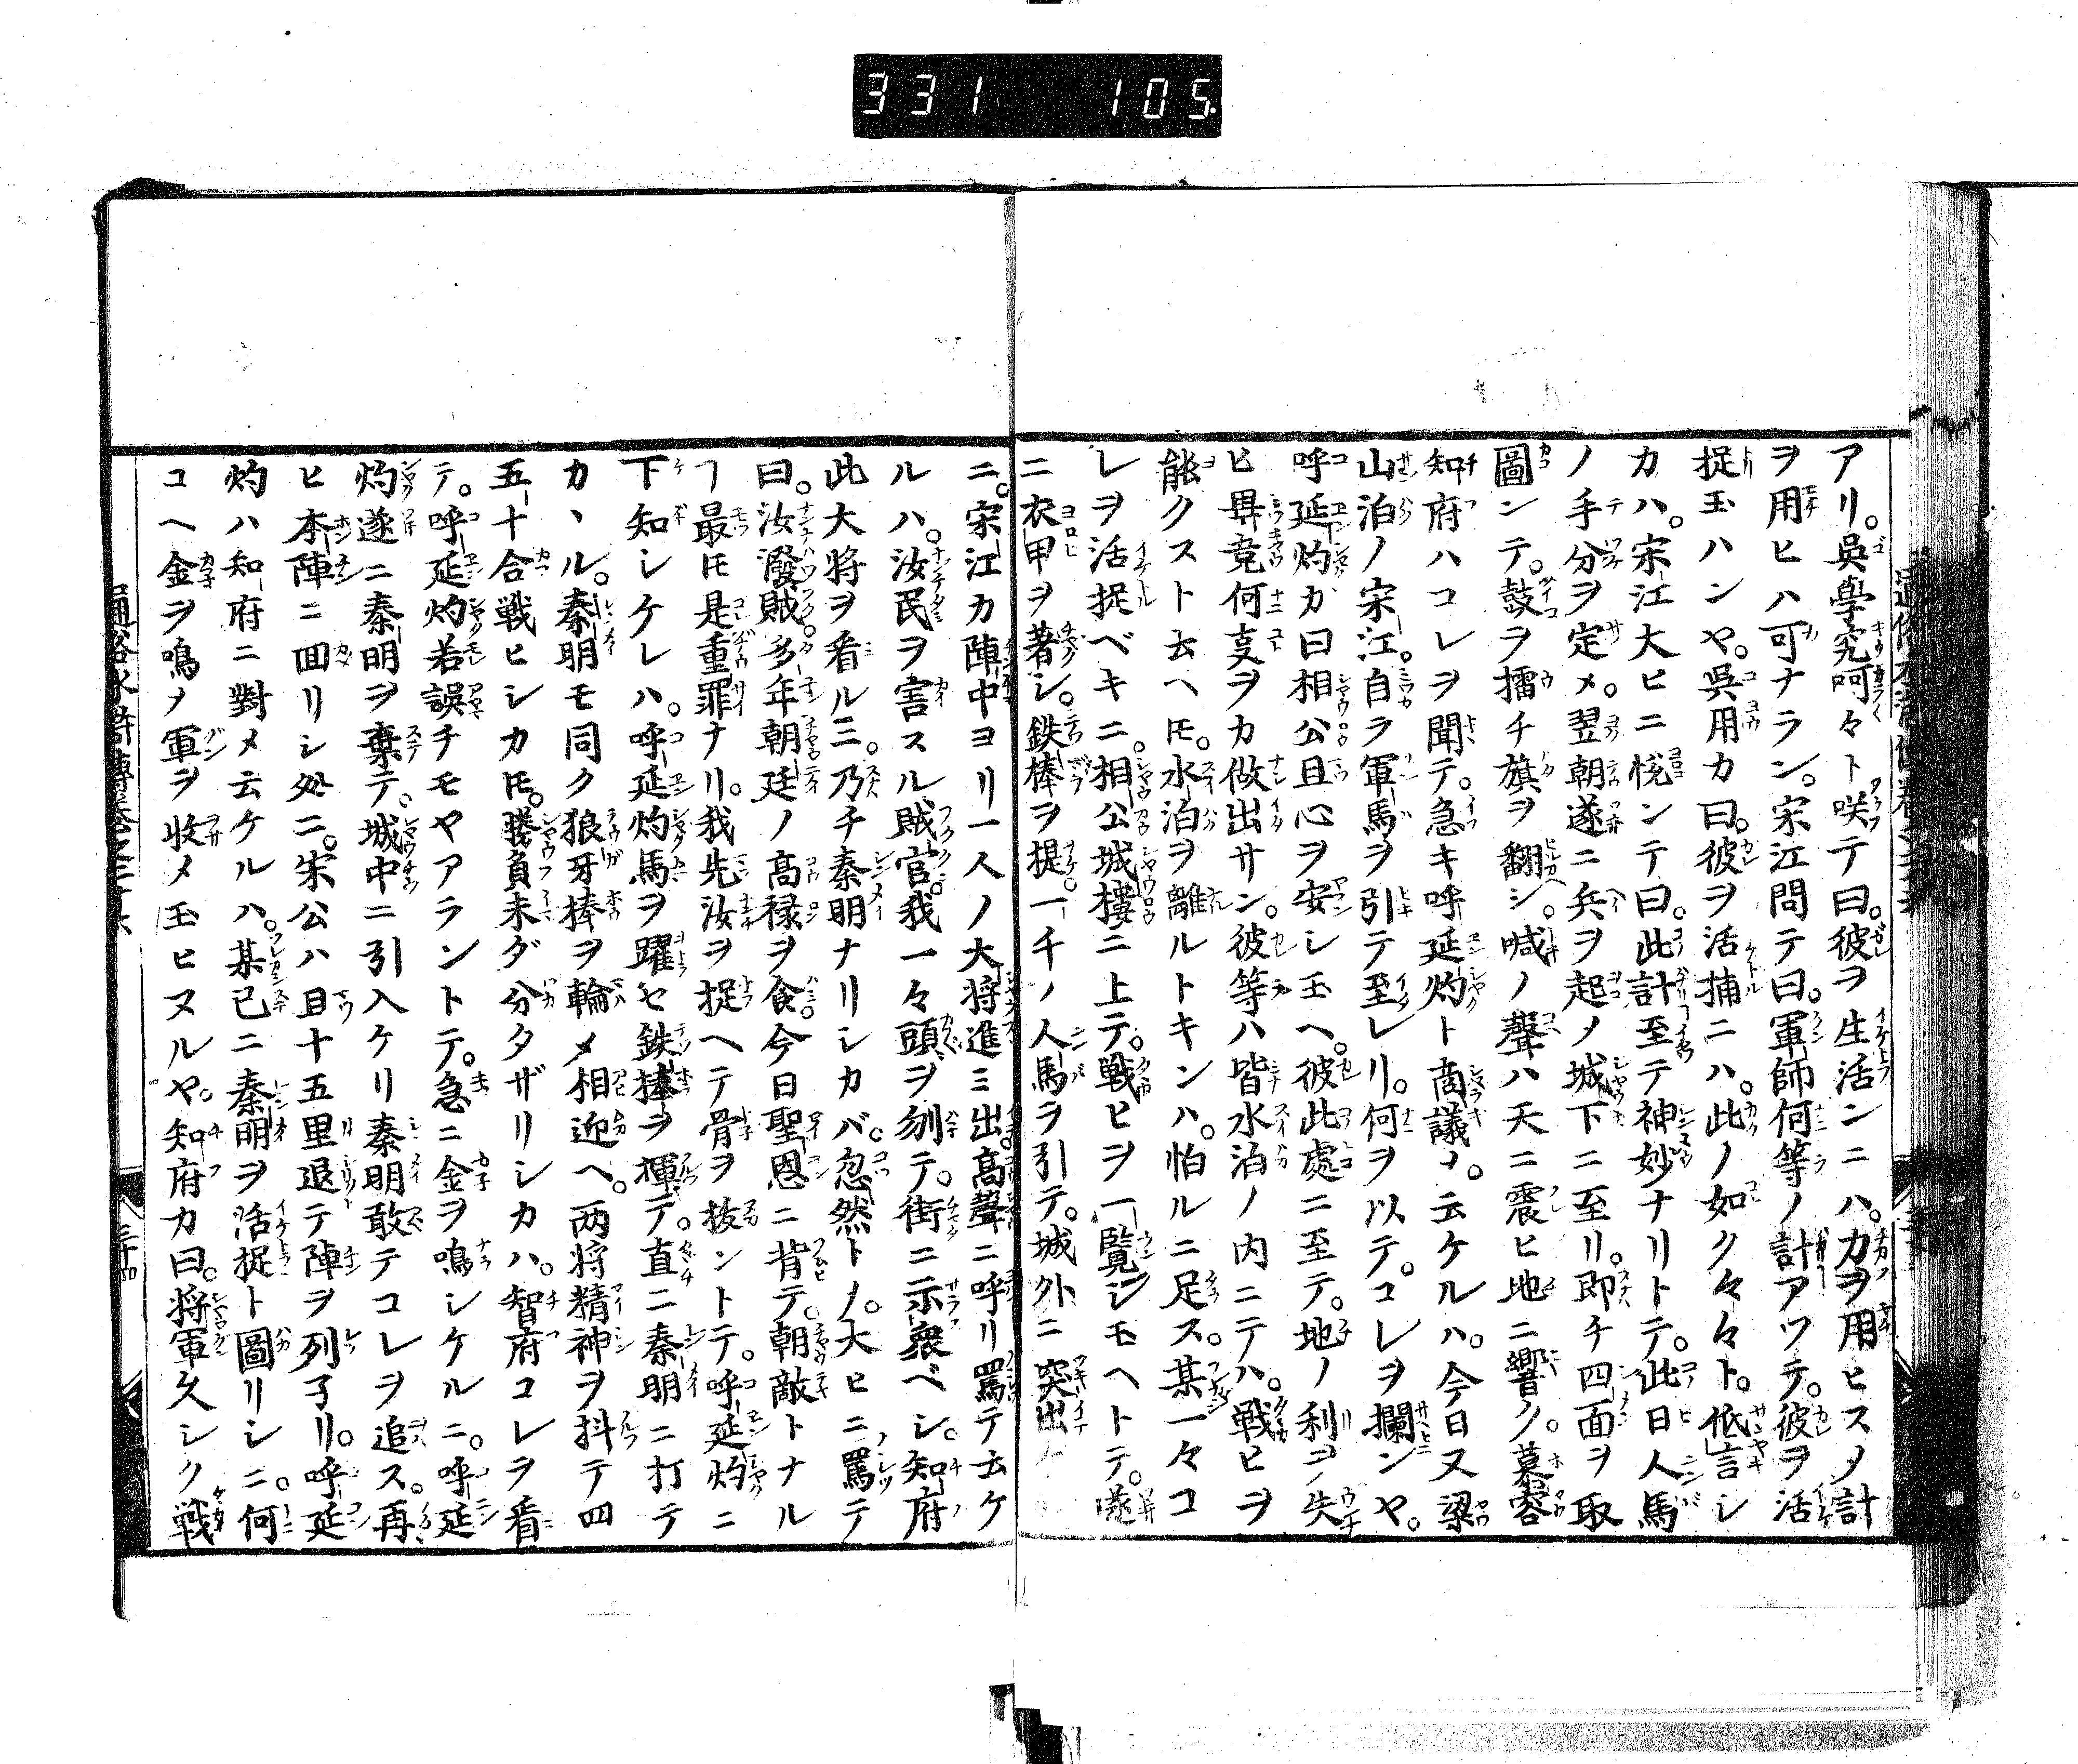 331 105
アリ。吳學究呵々ト咲テ曰。彼ヲ生活ンニハ。力ヲ用ヒスノ計
ヲ用ヒハ可ナラン。宋江問テ曰。軍師何等ノ計アツテ。彼ヲ活
捉玉ハンヤ。呉用カ曰。彼ヲ活捕ニハ。此ノ如ク々々ト。低言シ
カハ。宋江大ヒニ悅ンテ曰。此計至テ神妙ナリトテ。此日人馬
ノ手分ヲ定メ。翌朝遂ニ兵ヲ起メ城下ニ至リ。即チ四面ヲ取
圖ンテ。鼓ヲ擂チ旗ヲ翻シ。喊ノ聲ハ天ニ震ヒ地ニ響ク。慕容
知府ハコレヲ聞テ。急キ呼延灼ト商議メ。云ケルハ。今日又梁
山泊ノ宋江。自ラ軍馬ヲ引テ至レリ。何ヲ以テ。コレヲ攔ンヤ。
呼延灼カ曰相公且心ヲ安シ玉ヘ。彼此處ニ至テ。地ノ利ヲ失
ヒ畢竟何叓ヲカ做出サン。彼等ハ皆水泊ノ内ニテハ。戦ヒヲ
能クスト云ヘ𪜈。水泊ヲ離ルトキンハ。怕ルニ足ス。某一々コ
レヲ活捉ベキニ。相公城樓ニ上テ。戦ヒヲ一覧シモヘトテ。遂
ニ衣甲ヲ著シ。鉄棒ヲ提。一千ノ人馬ヲ引テ。城外ニ突出
ニ。宋江カ陣中ヨリ一人ノ大将進ミ出。髙聲ニ呼リ罵テ云ケ
ルハ。汝民ヲ害スル賊官。我一々頭ヲ刎テ。街ニ示衆ベシ。知府
此大将ヲ看ルニ。乃チ秦明ナリシカバ。忽然トメ。大ヒニ罵テ
曰。汝潑賊多年朝廷ノ髙禄ヲ食。今日聖恩ニ背テ。朝敵トナル
ヿ最𪜈是重罪ナリ。我先汝ヲ捉ヘテ骨ヲ抜ントテ。呼延灼ニ
下知シケレハ。呼延灼馬ヲ躍セ鉄捧ヲ揮テ。直ニ秦明ニ打テ
カヽル。秦明モ同ク狼牙棒ヲ輪メ相迎ヘ。两将精神ヲ抖テ四
五十合戦ヒシカ𪜈。勝負未ダ分タザリシカハ。智府コレヲ看
テ。呼延灼若誤チモヤアラントテ。急ニ金ヲ鳴シケルニ。呼延
灼遂ニ秦明ヲ棄テ。城中ニ引入ケリ秦明敢テコレヲ追ス。再
ヒ本陣ニ回リシ処ニ。宋公ハ且十五里退テ陣ヲ列了リ。呼延
灼ハ知府ニ對メ云ケルハ。某已ニ秦明ヲ活捉ト圖リシニ。何
コヘ金ヲ鳴メ軍ヲ收メ玉ヒヌルヤ。知府カ曰。将軍久シク戦
通俗水滸傳卷之三十六
三十四